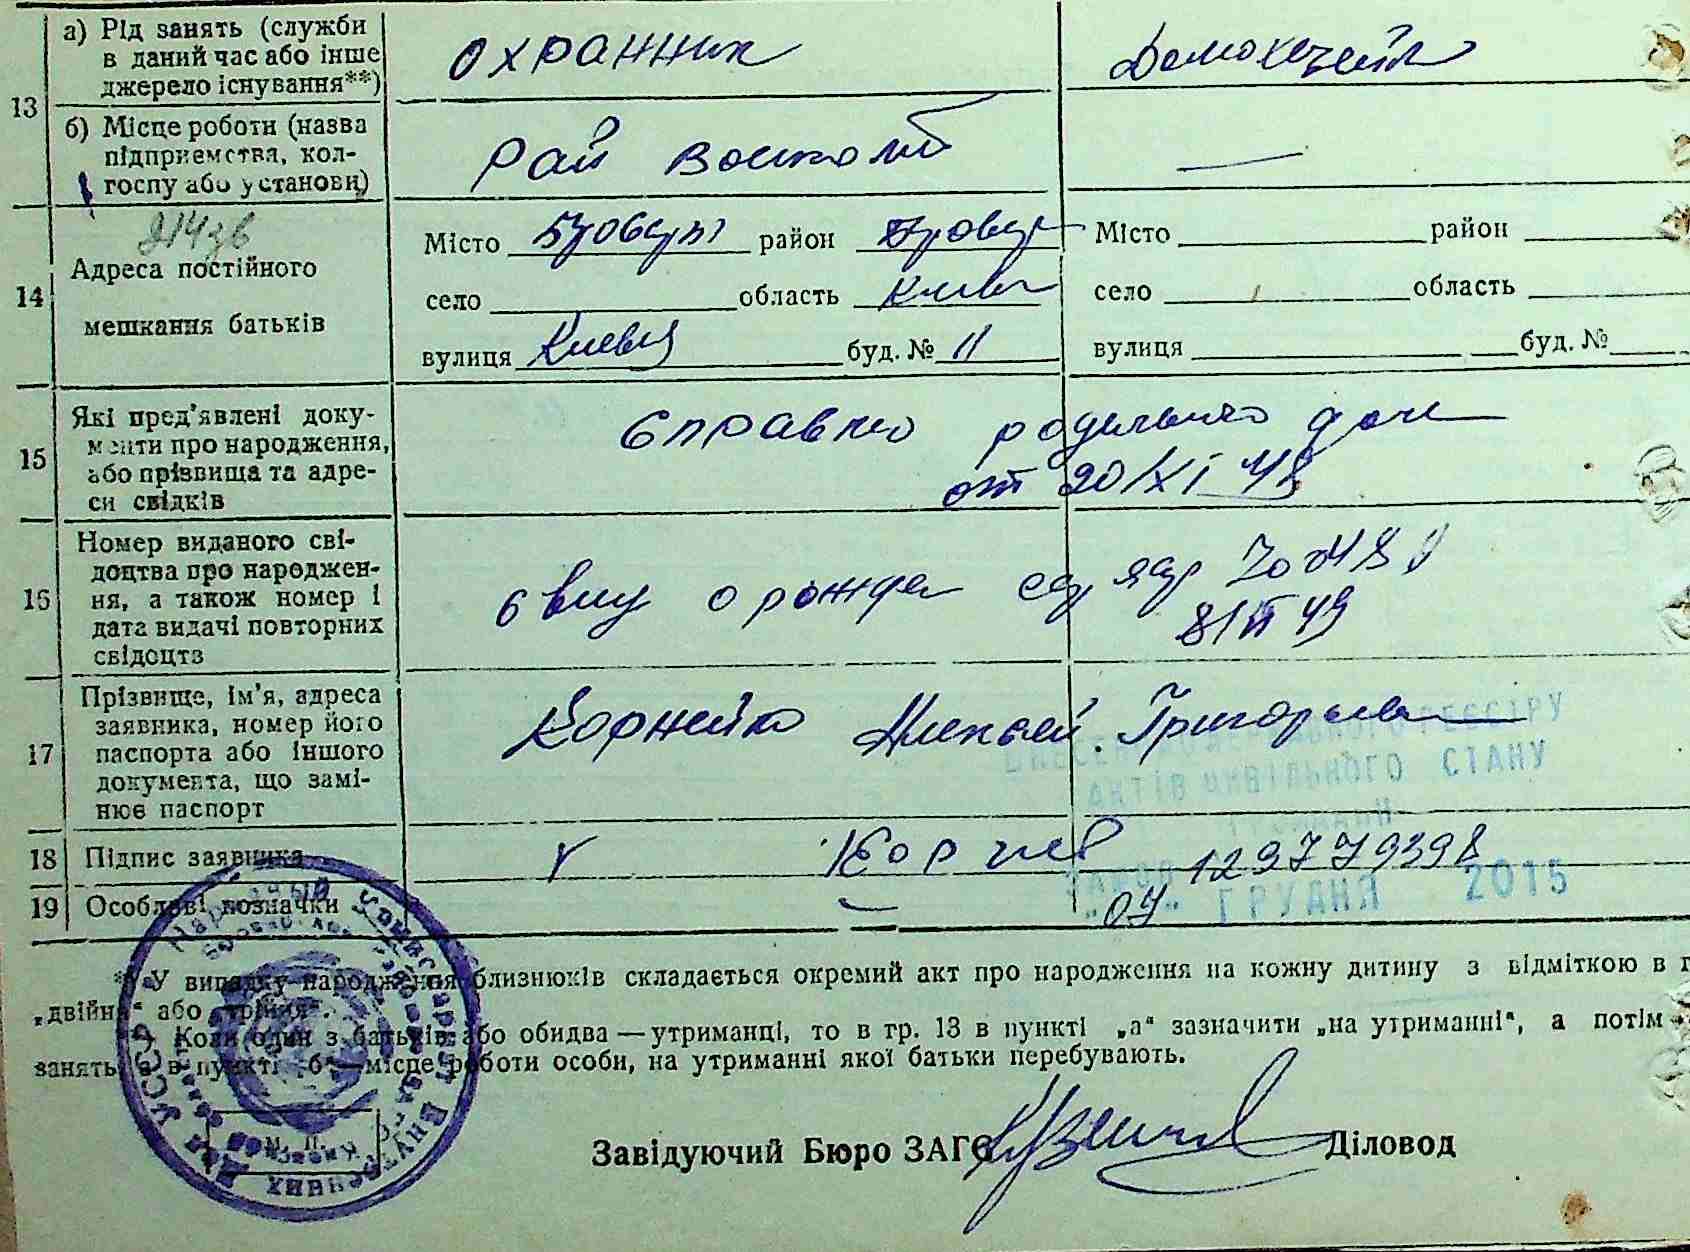 а) Рід занять (служби
в даний час або інше
джерело існування**)
охранник
Домохозяйк
13
б) Місце роботи (назва
підприємства, кол-
госпу або установи)
Рай
—
14
Адреса постійного
мешкання батьків
Місто Бровары район Бровар
село область Киевс
вулиця Киевск буд. № 11
Місто район
село область
вулиця буд. №
15
Які пред'явлені доку-
менти про народження,
або прізвища та адре-
си свідків
Справка родильного дома
от 20/XI 48
16
Номер виданого сві-
доцтва про народжен-
ня, а також номер і
дата видачі повторних
свідоцтв
о рожде
49
17
Прізвище, ім'я, адреса
заявника, номер його
паспорта або іншого
документа, що замі-
нює паспорт
Корнейко Григорьев
ДЕРЖАВНОГО РЕЄСТРУ
АКТІВ ЦИВІЛЬНОГО СТАНУ
ГРОМАДЯН
18 Підпис заявника
Корне
1297779398
19 Особливі позначки
—
„04" ГРУДНЯ 2015
*) У випадку народження близнюків складається окремий акт про народження на кожну дитину з відміткою в г
„двійня" або „трійня".
Коли один з батьків або обидва — утриманці, то в гр. 13 в пункті „а" зазначити „на утриманні", а потім
занять, а в пункті „б" — місце роботи особи, на утриманні якої батьки перебувають.
Народный Комиссариат Внутренних Дел УССР
М. П.
Завідуючий Бюро ЗАГС Діловод